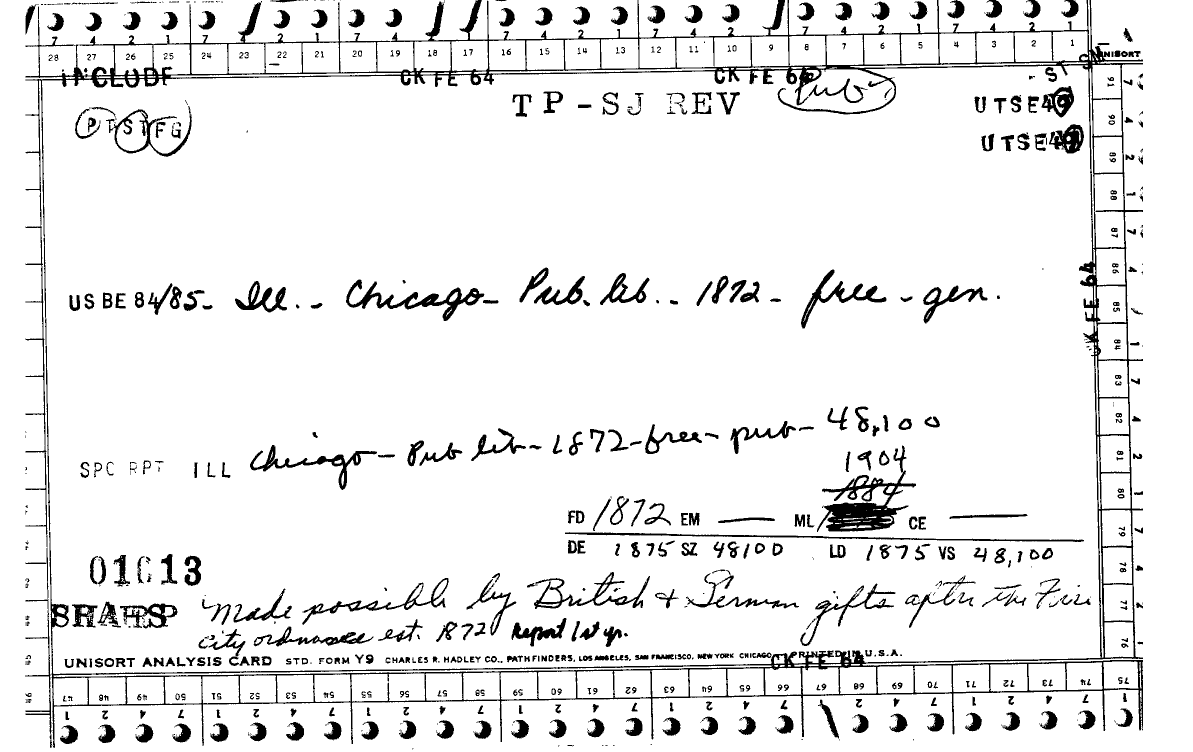 7 4 2 1 7 4 2 1 7 4 2 1 7 4 2 1 7 4 2 1 7 4 2 1
28 27 26 25 24 23 22 21 20 19 18 17 16 15 14 13 12 11 10 9 8 7 6 5 4 3 2 1 UNISORT
INCLUDE CK FE 64 CK FE 64
TP-SJ REV Pub
PTSTFG
- ST
UTSE49
UTSE49
US BE 84/85- Ill. - Chicago- Pub. lib. - 1872 - free - gen.
CK FE 64
SPC RPT ILL Chicago - Pub lib - 1872 - free - pub - 48,100
1904
1884
FD 1872 EM — ML CE —
DE 1875 SZ 48100 LD 1875 VS 48,100
01613
SHARSP Made possible by British & German gifts after the Fire
city ordinance est. 1872 Report 1st yr.
UNISORT ANALYSIS CARD STD. FORM Y9 CHARLES R. HADLEY CO., PATHFINDERS, LOS ANGELES, SAN FRANCISCO, NEW YORK CHICAGO PRINTED IN U.S.A.
CK FE 64
91 90 89 88 87 86 85 84 83 82 81 80 79 78 77 76
47 48 49 50 51 52 53 54 55 56 57 58 59 60 61 62 63 64 66 67 68 69 70 71 72 73 74 75
1 2 4 7 1 2 4 7 1 2 4 7 1 2 4 7 1 2 4 7 2 4 7 1 2 4 7 1